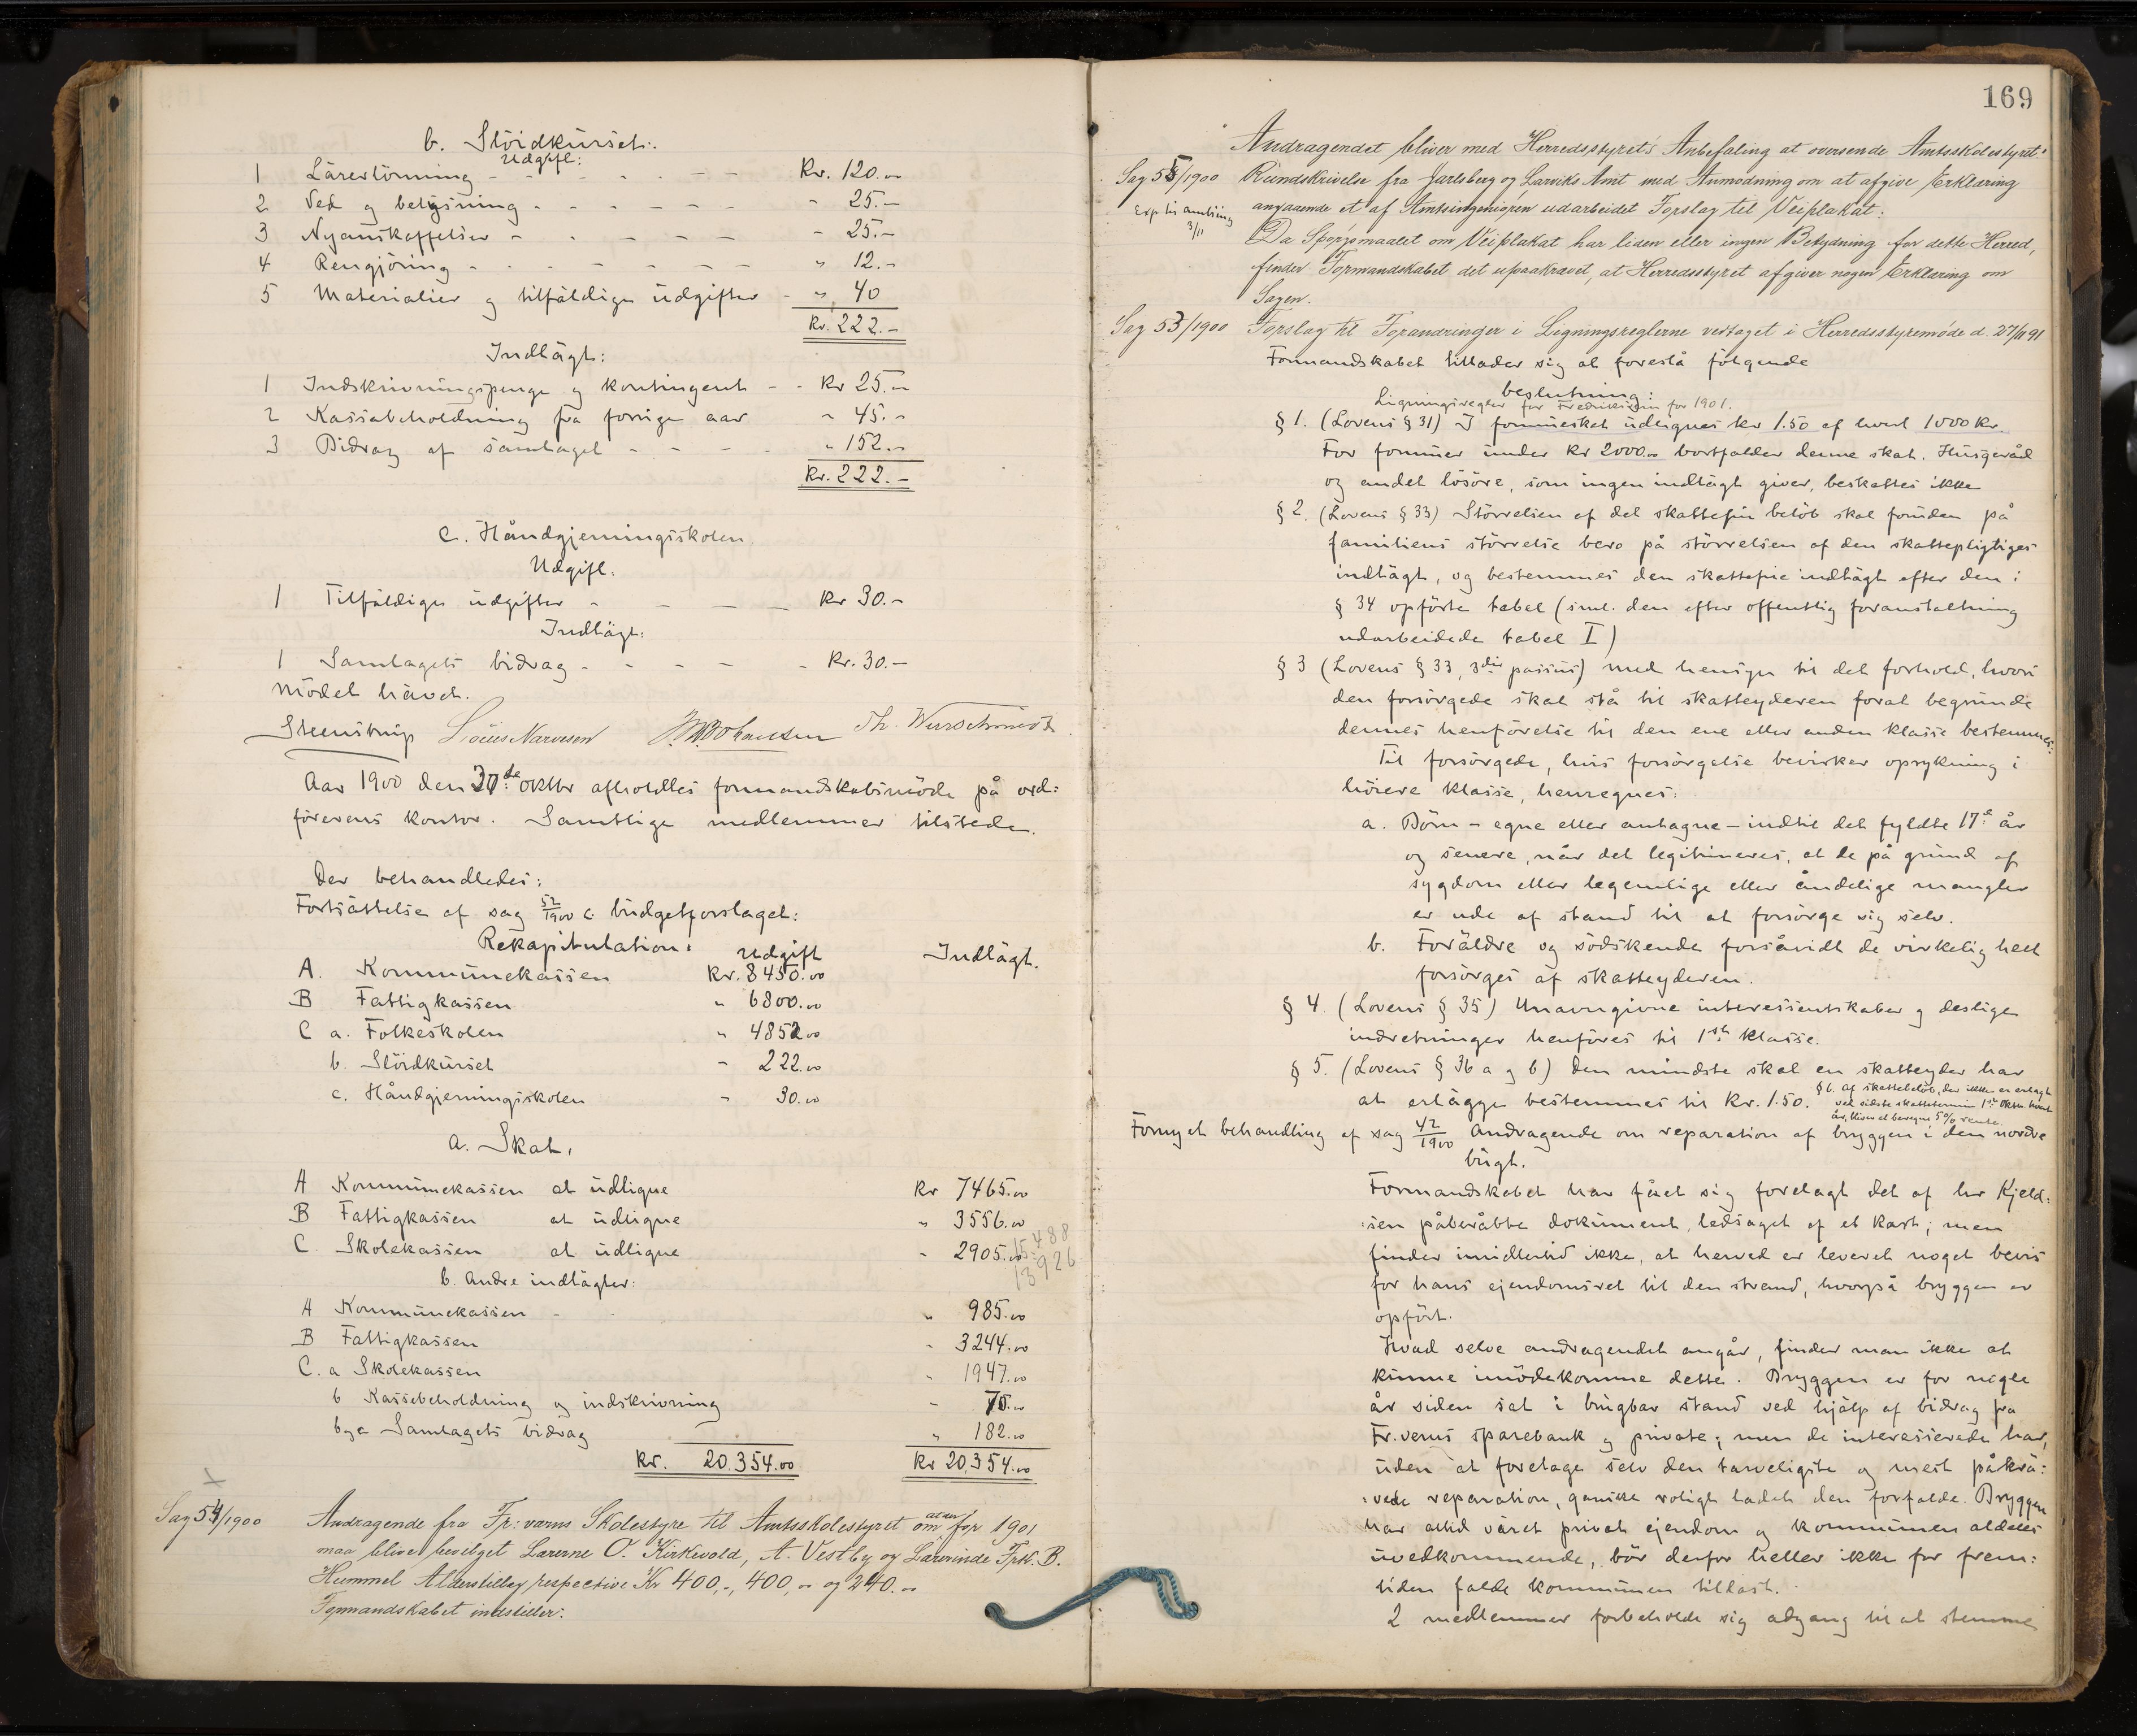 b. Slöidkurset:
Udgift:
1 Lärerlönning - - - - - - Kr. 120.00
2 Ved og belysning - - - - - - " 25.-
3 Nyanskaffelser - - - - - - " 25.-
4 Rengjöring - - - - - - - " 12.-
5 Materialier og tilfäldige udgifter - " 40
Kr. 222.-
Indtägt:
1 Indskrivningspenge og kontingent - - Kr 25.00
2 Kassabeholdning fra forrige aar " 45.-
3 Bidrag af samlaget - - - - " 152.-
Kr. 222.-
c. Håndgjerningsskolen.
Udgift.
1 Tilfäldige udgifter - - - - Kr 30.-
Indtägt:
1 Samlagets bidrag - - - - - Kr. 30.-
Mödet hävet.
Steenstrup Louis Narvesen Th. Wurschmidt
Aar 1900 den 30te oktbr afholdtes formandskabsmöde på ord:
förerens kontor. Samtlige medlemmer tilstede.
Der behandledes:
Fortsättelse af sag 52/1900 c. budgetforslaget:
Rekapitulation: Udgift Indtägt.
A. Kommunekassen Kr. 8450.00
B Fattigkassen " 6800.00
C a. Folkeskolen " 4852.00
b. Slöidkurset " 222.00
c. Håndgjerningsskolen " 30.00
a. Skat.
A Kommunekassen at udligne Kr 7465.00
B Fattigkassen at udligne " 3556.00
C. Skolekassen at udligne " 2905.00
15488
13926
b. Andre indtägter:
A Kommunekassen - " 985.00
B Fattigkassen " 3244.00
C. a Skolekassen " 1947.00
b Kassebeholdning og indskrivning " 75.00
b g c Samlagets bidrag " 182.00
Kr. 20.354.00 Kr 20,354.00
Sag 54/1900 Andragende fra Fr:værns Skolestyre til Amtsskolestyret om for 1901
maa blive bevilget Lærerne O. Kirkevold, A. Vestby og Lærerinde Frk. B.
Hummel Alderstillæg respective Kr 400,-, 400,00 og 240.00
Formandskabet indstiller:
169
Andragendet bliver med Herredsstyrets Anbefaling at oversende Amtsskolestyret.
Sag 55/1900 Rundskrivelse fra Jarlsberg og Larviks Amt med Anmodning om at afgive Erklæring
Exp. til amtsing 3/11
angaaende et af Amtsingeniøren udarbeidet Forslag til Veiplakat:
Da Spørgsmaalet om Veiplakat har liden eller ingen Betydning for dette Herred,
finder Formandskabet det upaakrævet, at Herredsstyret afgiver nogen Erklæring om
Sagen.
Sag 53/1900 Forslag til Forandringer i Ligningsreglerne vedtaget i Herredsstyremøde d. 27/11 91
Formandskabet tillader sig at foreslå fölgende
beslutning:
Ligningsregler for Fredriksværn for 1901.
§ 1. (Lovens § 31) I formueskat udlignes kr 1.50 af hvert 1000 kr.
For formuer under Kr 2000.00 bortfalder denne skat. Husgeråd
og andet lösöre, som ingen indtägt giver, beskattes ikke
§ 2. (Lovens § 33) Störrelsen af det skattefri belöb skal foruden på
familiens störrelse bero på störrelsen af den skattepligtiges
indtägt, og bestemmes den skattefrie indtägt efter den i
§ 34 opförte tabel (sml. den efter offentlig foranstaltning
udarbeidede tabel I)
§ 3 (Lovens § 33, 3die passus) med hensyn til det forhold, hvori
den forsörgede skal stå til skatteyderen forat begrunde
dennes henförelse til den ene eller anden klasse bestemmes:
Til forsörgede, hvis forsörgelse bevirker oprykning i
höiere klasse, henregnes:
a. Börn - egne eller antagne - indtil det fyldte 17de år
og senere, når det legitimeres, at de på grund af
sygdom eller legemlige eller åndelige mangler
er ude af stand til at forsörge sig selv.
b. Foräldre og södskende forsåvidt de virkelig helt
forsörges af skatteyderen.
§ 4. (Lovens § 35) Unavngivne interessentskaber og deslige
indretninger henföres til 1ste klasse.
§ 5. (Lovens § 36 a og b) den mindste skat en skatteyder har
at erlägge bestemmes til Kr. 1.50.
§ 6. af skattebelöb, der ikke er erlagt
ved sidste skattetermin 1ste oktbr. hvert
år, bliver at beregne 5 % rente.
Fornyet behandling af sag 42/1900 Andragende om reparation af bryggen i den nordre
bugt.
Formandskabet har fået sig forelagt det af hr Kjeld:
:sen påberåbte dokument, ledsaget af et kart; men
finder imidlertid ikke, at herved er leveret noget bevis
for hans ejendomsret til den strand, hvorpå bryggen er
opfört.
Hvad selve andragendet angår, finder man ikke at
kunne imödekomme dette. Bryggen er for nogle
år siden sat i brugbar stand ved hjälp af bidrag fra
Fr.verns sparebank og private; men de interesserede har,
uden at foretage selv den tarveligste og mest påkrä:
:vede reparation, ganske roligt ladet den forfalde. Bryggen
har altid väret privat ejendom og kommunen aldeles
uvedkommende, bör derfor heller ikke for frem:
tiden falde kommunen tillast.
2 medlemmer forbeholde sig adgang til at stemme